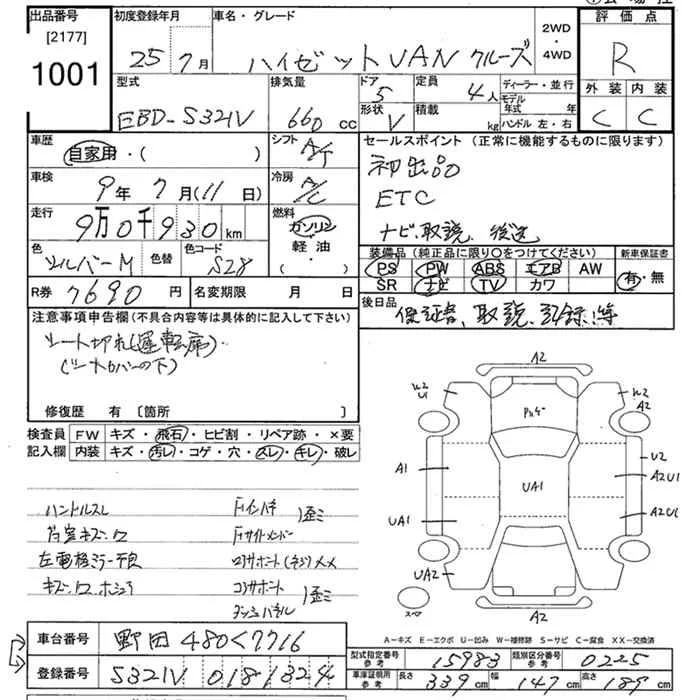 出品番号
[2177]
1001
初度登録年月
25年 7月
車名・グレード
ハイゼットVAN クルーズ
2WD・4WD
評価点
R
外装 内装
C C
型式
EBD-S321V
排気量
660 cc
ドア
5
形状
V
定員
4人
積載
kg
ディーラー・並行
モデル年式 年
ハンドル 左・右
車歴
自家用・( )
シフト
A/T
セールスポイント (正常に機能するものに限ります)
初出品
ETC
ナビ取説 後送
車検
9年 7月(11日)
冷房
A/C
走行
9万0千930km
燃料
ガソリン・軽油・( )
色
シルバーM
色替
色コード
S28
装備品 (純正品に限り○をつけてください)
新車保証書
PS PW ABS エアB AW
有・無
SR ナビ TV カワ
R券 7690円
名変期限 月 日
後日品
保証書、取説、記録簿
注意事項申告欄 (不具合内容等は具体的に記入して下さい)
シート切れ(運転席)
(シートカバーの下)
修復歴 有 [箇所 ]
検査員記入欄
FW キズ・飛石・ヒビ割・リペア跡・×要
内装 キズ・汚レ・コゲ・穴・スレ・キレ・破レ
ハンドルスレ
内室キズ・ワレ
左電格ミラー不良
キズ・ワレ
歪ミ
コアサポート
ダッシュパネル
歪ミ
A2
W2
U1
W2
A2
A1
UA1
UA1
U2
A2U1
A2U1
UA2
スペア
A2
A-キズ E-エクボ U-凹み W-補修跡 S-サビ C-腐食 XX-交換済
車台番号 野田480く7716
登録番号 S321V 0181324
型式指定番号 参考 15983
類別区分番号 参考 0225
車庫証明用 参考 長さ 339cm 幅 147cm 高さ 189cm